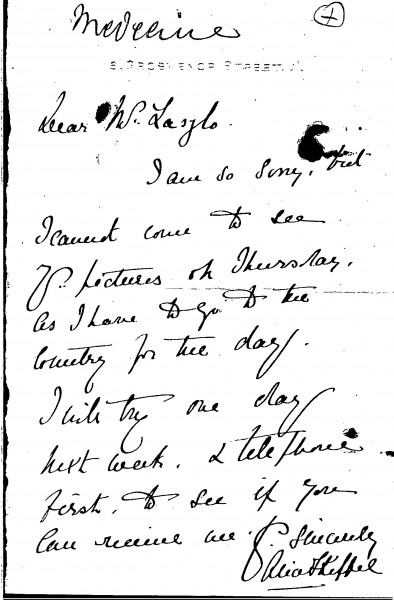 Medecine
GROSVENOR STREET. W.
Dear Mr. Laszlo.
I am so sorry, but
I cannot come to see
yr. pictures on Thursday.
as I have to go to the
Country for the day.
I will try one day
next week. & telephone
first. to see if you
can receive me. Yr. Sincerely
Alice Keppel